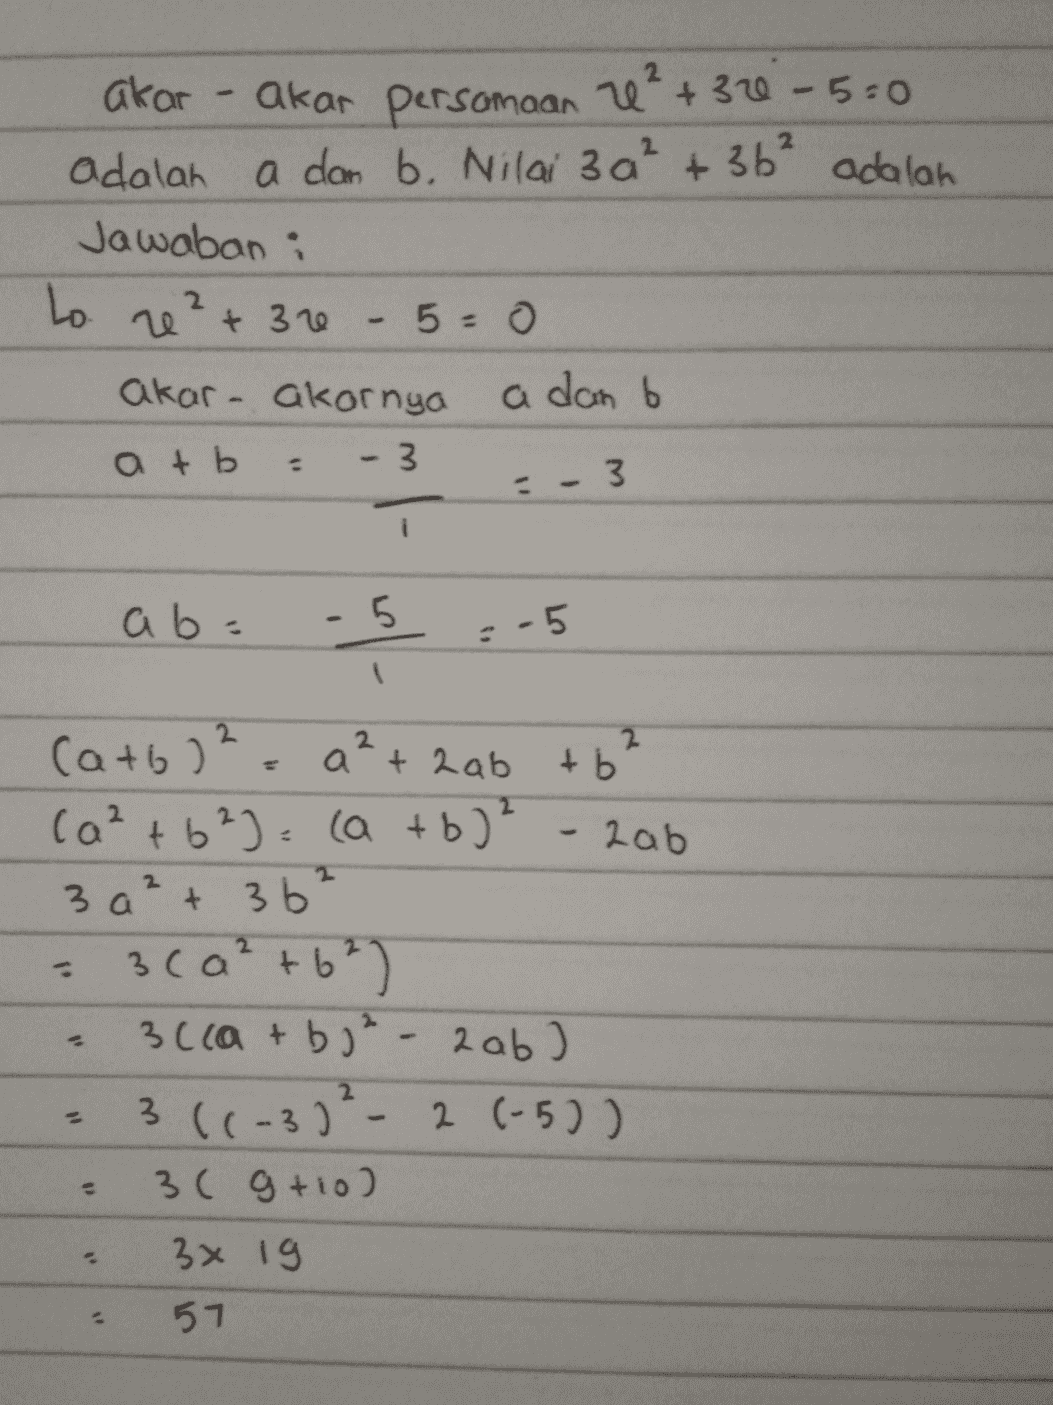 akar - akar persamaan x² + 3x - 5 = 0
adalah a dan b. Nilai 3a² + 3b² adalah
Jawaban :
↳ x² + 3x - 5 = 0
akar - akarnya a dan b
a + b = -3/1 = -3
ab = -5/1 = -5
(a+b)² = a² + 2ab + b²
(a² + b²) = (a + b)² - 2ab
3a² + 3b²
= 3(a² + b²)
= 3((a + b)² - 2ab)
= 3((-3)² - 2(-5))
= 3(9+10)
= 3x19
= 57